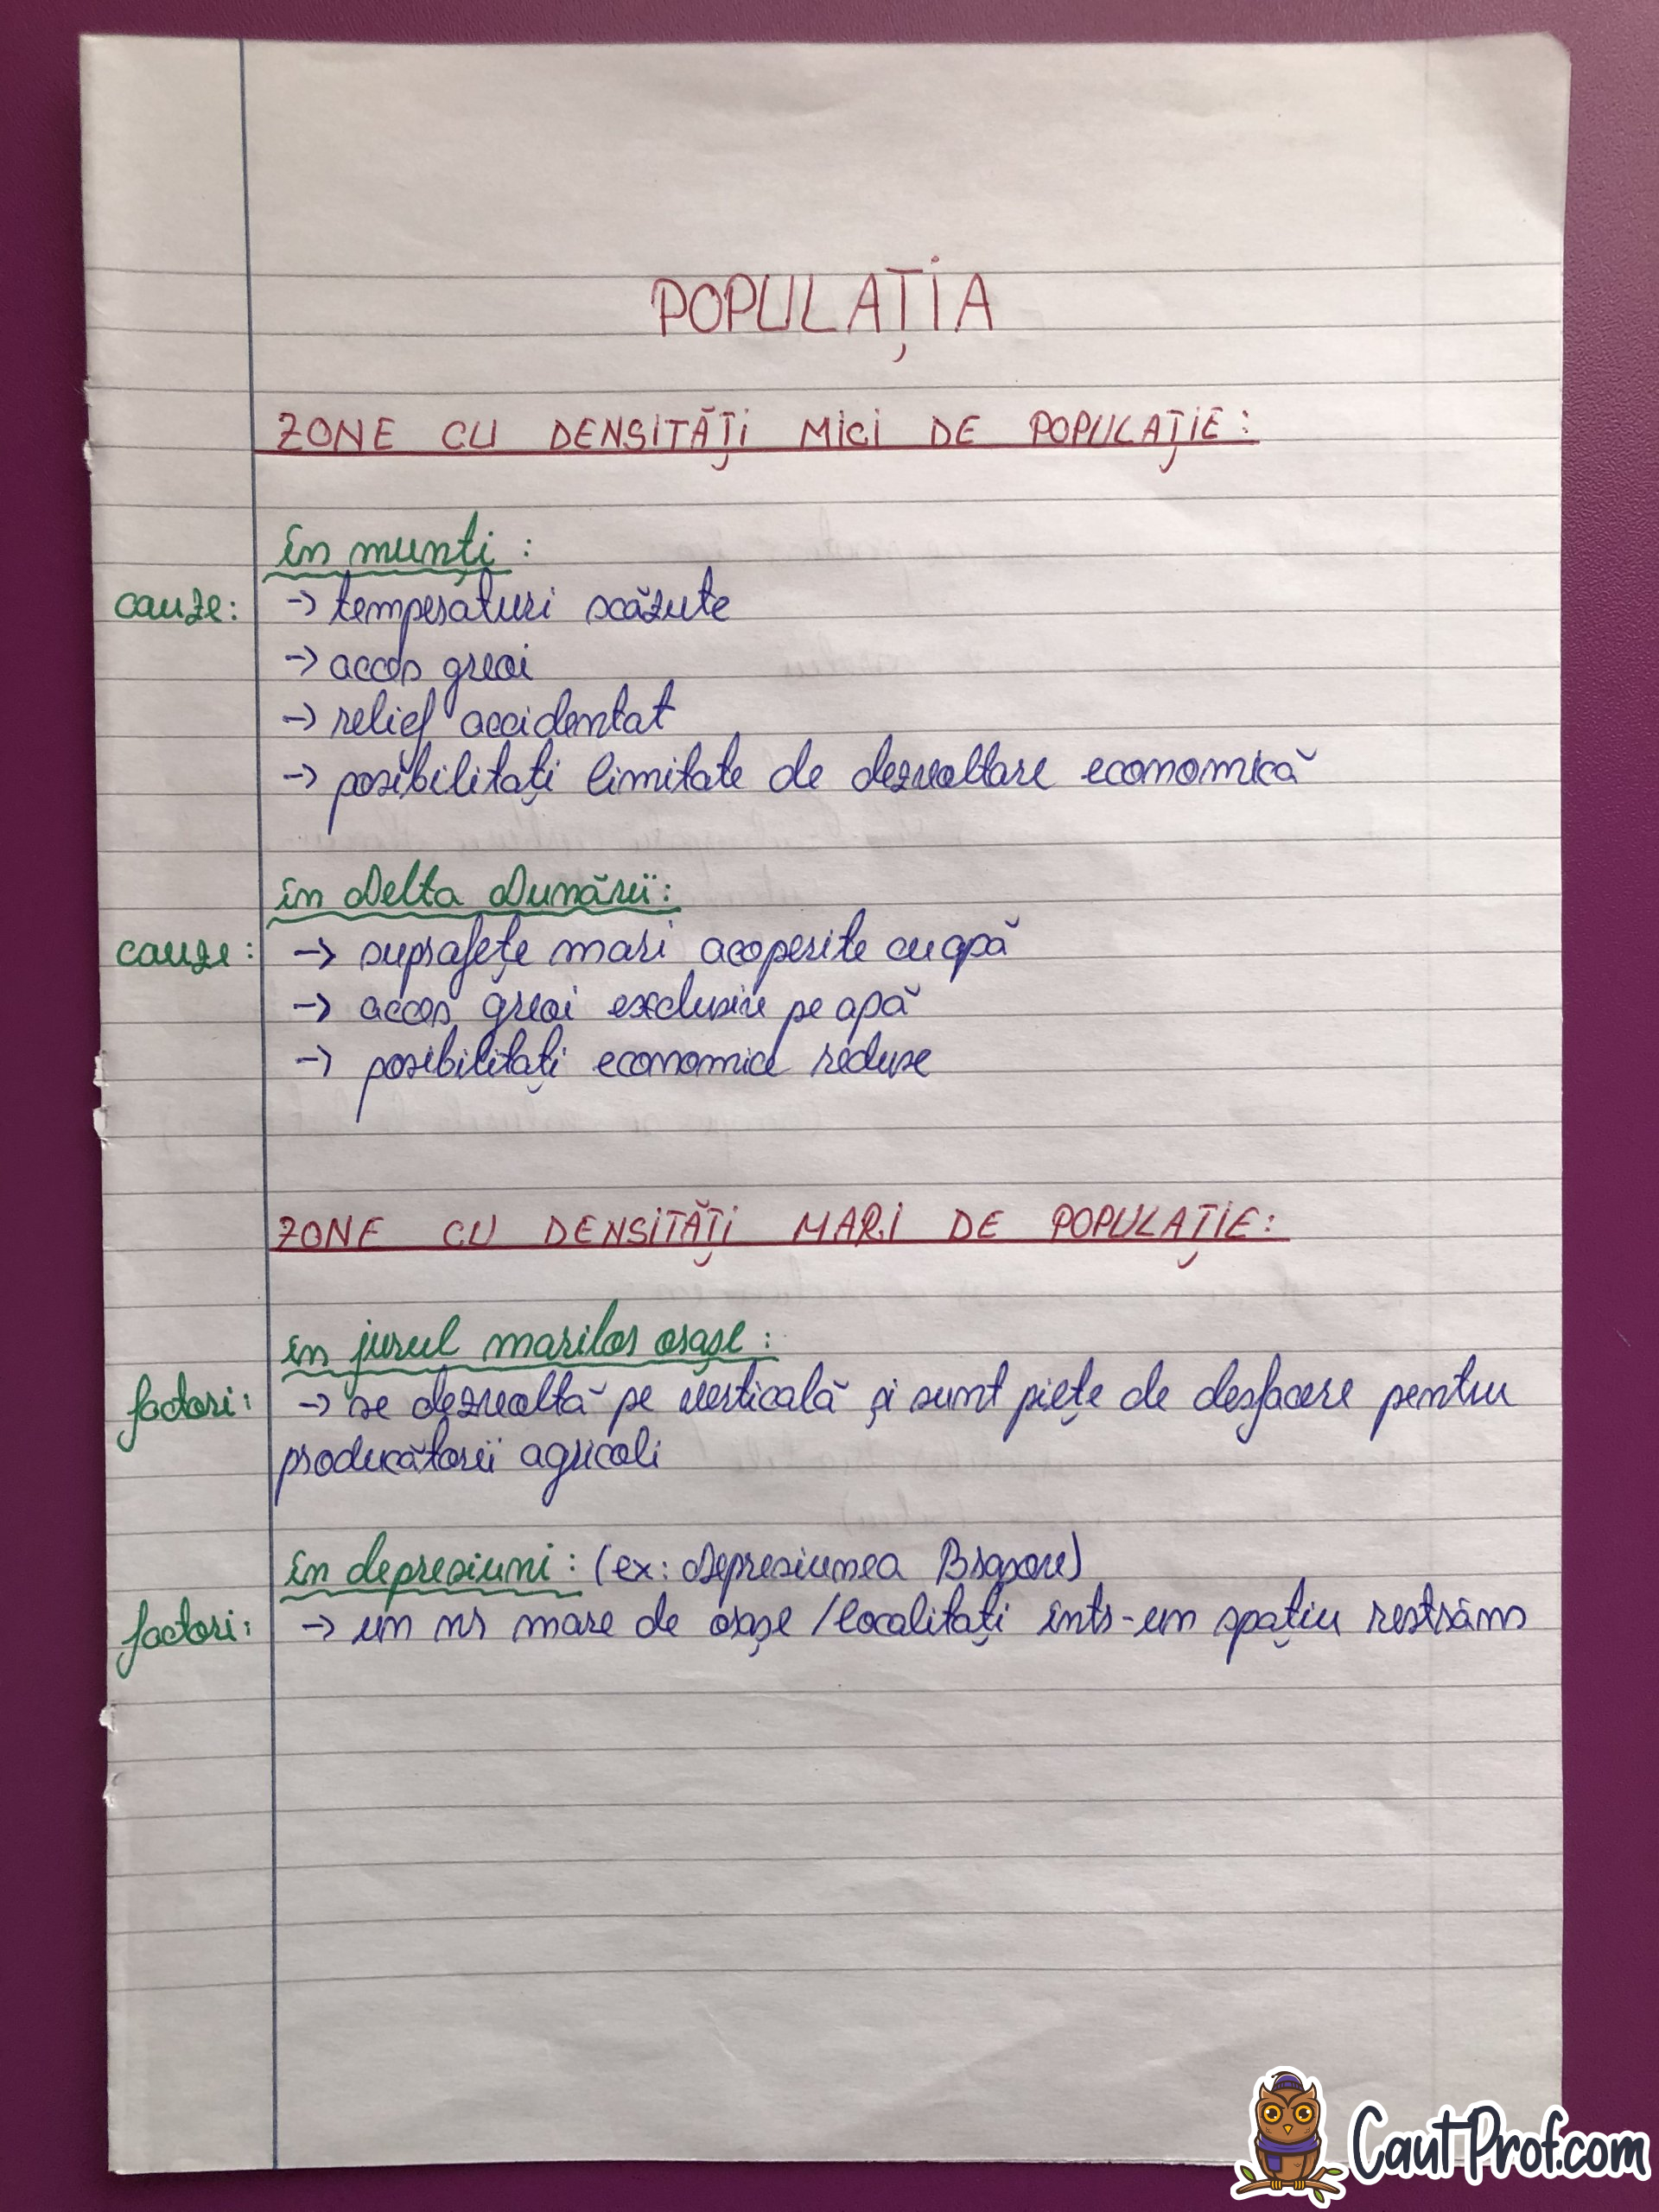 POPULAȚIA
ZONE CU DENSITĂȚI MICI DE POPULAȚIE:
în munți:
cauze: → temperaturi scăzute
→ acces greoi
→ relief accidentat
→ posibilități limitate de dezvoltare economică
în Delta Dunării:
cauze: → suprafețe mari acoperite cu apă
→ acces greoi exclusiv pe apă
→ posibilități economice reduse
ZONE CU DENSITĂȚI MARI DE POPULAȚIE:
în jurul marilor orașe:
factori: → se dezvoltă pe verticală și sunt piețe de desfacere pentru
producătorii agricoli
în depresiuni: (ex: Depresiunea Brașov)
factori: → un nr mare de orașe/localități într-un spațiu restrâns
CautProf.com